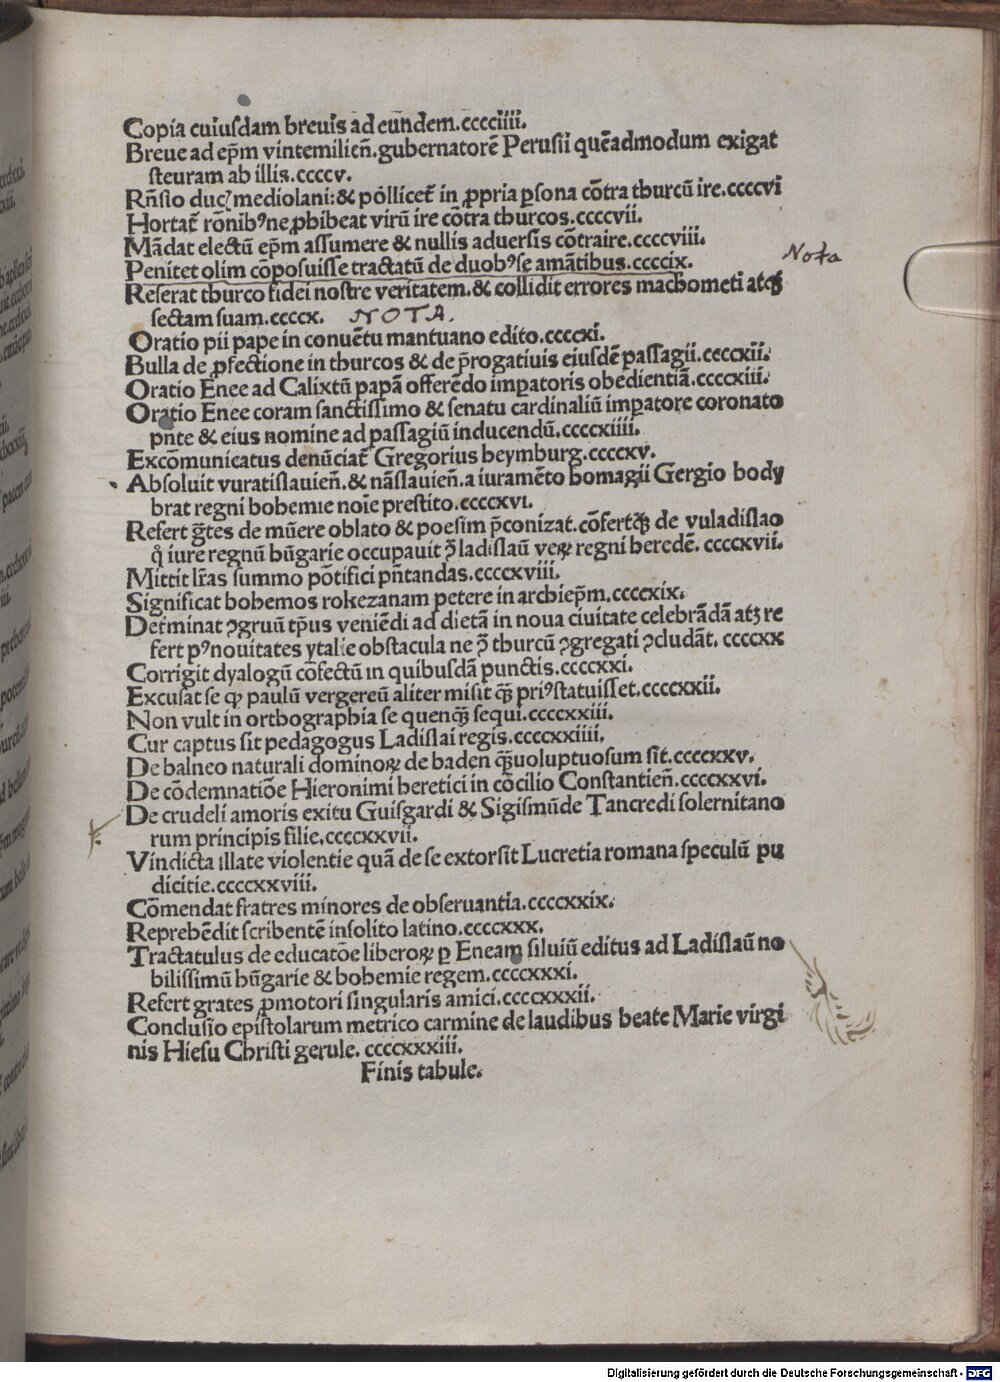 Copia cuiuſdam breuis ad eūndem.cccciiii.
Breue ad ep̄m vintemilien̄.gubernatorē Peruſii quēadmodum exigat
ſteuram ab illis.ccccv.
Rn̄ſio duc̹ mediolani:& pollicet̄ in ꝓpria ꝑſona cōtra thurcū ire.ccccvi
Hortat̄ rōnibꝰne ꝓhibeat virū ire cōtra thurcos.ccccvii.
Mādat electū ep̄m aſſumere & nullis aduerſis cōtraire.ccccviii.
Penitet olim cōpoſuiſſe tractatū de duobꝰſe amātibus.ccccix. Nota
Reſerat thurco fidei noſtre veritatem.& collidit errores machometi atqꝫ
ſectam ſuam.ccccx. NOTA.
Oratio pii pape in conuētu mantuano edito.ccccxi.
Bulla de ꝓfectione in thurcos & de p̄rogatiuis eiuſdē paſſagii.ccccxii.
Oratio Enee ad Calixtū papā offerēdo imꝑatoris obedientiā.ccccxiii.
Oratio Enee coram ſanctiſſimo & ſenatu cardinaliū imꝑatore coronato
pn̄te & eius nomine ad paſſagiū inducendū.ccccxiiii.
Excōmunicatus denūciat̄ Gregorius heymburg.ccccxv.
Abſoluit vuratiſlauien̄.& nāſlauien̄.a iuramēto homagii Gergio body
brat regni bohemie noīe preſtito.ccccxvi.
Refert ḡtes de mūere oblato & poeſim p̄conizat.cōfertqꝫ de vuladiſlao
q̊ iure regnū hūgarie occupauit ꝯ̄ ladiſlaū veꝝ regni heredē. ccccxvii.
Mittit lr̄as ſummo pōtifici pn̄tandas.ccccxviii.
Significat bohemos rokezanam petere in archiep̄m.ccccxix.
Det̄minat ꝯgruū tp̄us veniēdi ad dietā in noua ciuitate celebrādā atꝫ re
fert pꝰnouitates ytalie obſtacula ne ꝯ̄ thurcū ꝯgregati ꝯcludāt. ccccxx
Corrigit dyalogū cōfectū in quibuſdā punctis.ccccxxi.
Excuſat ſe ꝙ paulū vergereū aliter miſit qꝫ̄ priꝰſtatuiſſet.ccccxxii.
Non vult in orthographia ſe quenqꝫ̄ ſequi.ccccxxiii.
Cur captus ſit pedagogus Ladiſlai regis.ccccxxiiii.
De balneo naturali dominoꝝ de baden qꝫ̄uoluptuoſum ſit.ccccxxv.
De cōdemnatiōe Hieronimi heretici in cōcilio Conſtantien̄.ccccxxvi.
De crudeli amoris exitu Guiſgardi & Sigiſmūde Tancredi ſolernitano
rum principis filie.ccccxxvii.
Vindicta illate violentie quā de ſe extorſit Lucretia romana ſpeculū pu
dicitie.ccccxxviii.
Cōmendat fratres minores de obſeruantia.ccccxxix.
Reprehēdit ſcribentē inſolito latino.ccccxxx.
Tractatulus de educatōe liberoꝝ ꝑ Eneam ſiluiū editus ad Ladiſlaū no
biliſſimū hūgarie & bohemie regem.ccccxxxi.
Refert grates ꝓmotori ſingularis amici.ccccxxxii.
Concluſio epiſtolarum metrico carmine de laudibus beate Marie virgi
nis Hieſu Chriſti gerule. ccccxxxiii.
Finis tabule.
Digitalisierung gefördert durch die Deutsche Forschungsgemeinschaft - DFG